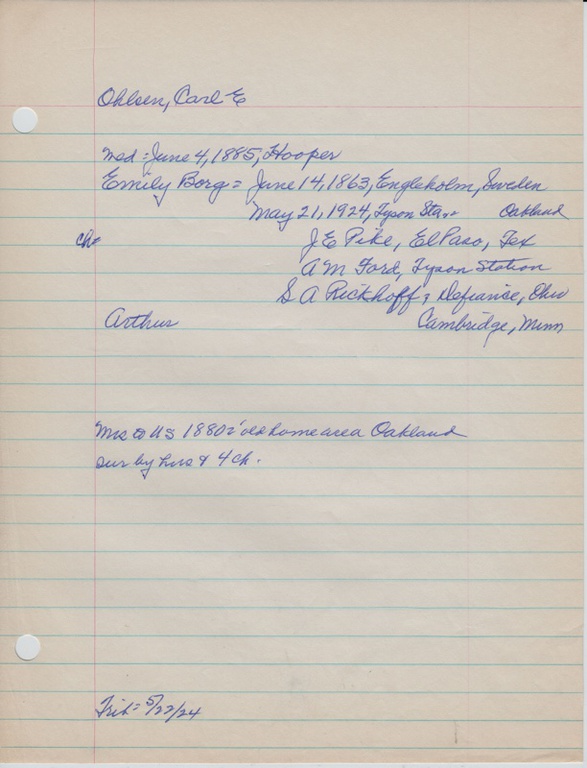 Ohlsen, Carl E
Med = June 4, 1885; Hooper
Emily Borg = June 14, 1863, Engleholm, Sweden
May 21, 1924, Tyson Sta.. Oakland
ch= J E Pike, El Paso, Tex
A M Ford, Tyson Station
S A Rickhoff, Defiance, Ohio
Arthur Cambridge, Minn
Mrs to US 1880 home area Oakland
sur by hus & 4 ch.
Trib = 5/22/24